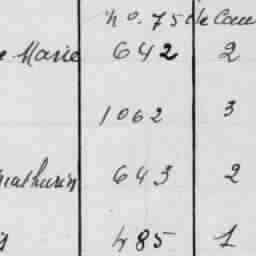 no. 75 de Cou
Marie 642 2
1062 3
Mathurin 643 2
485 1